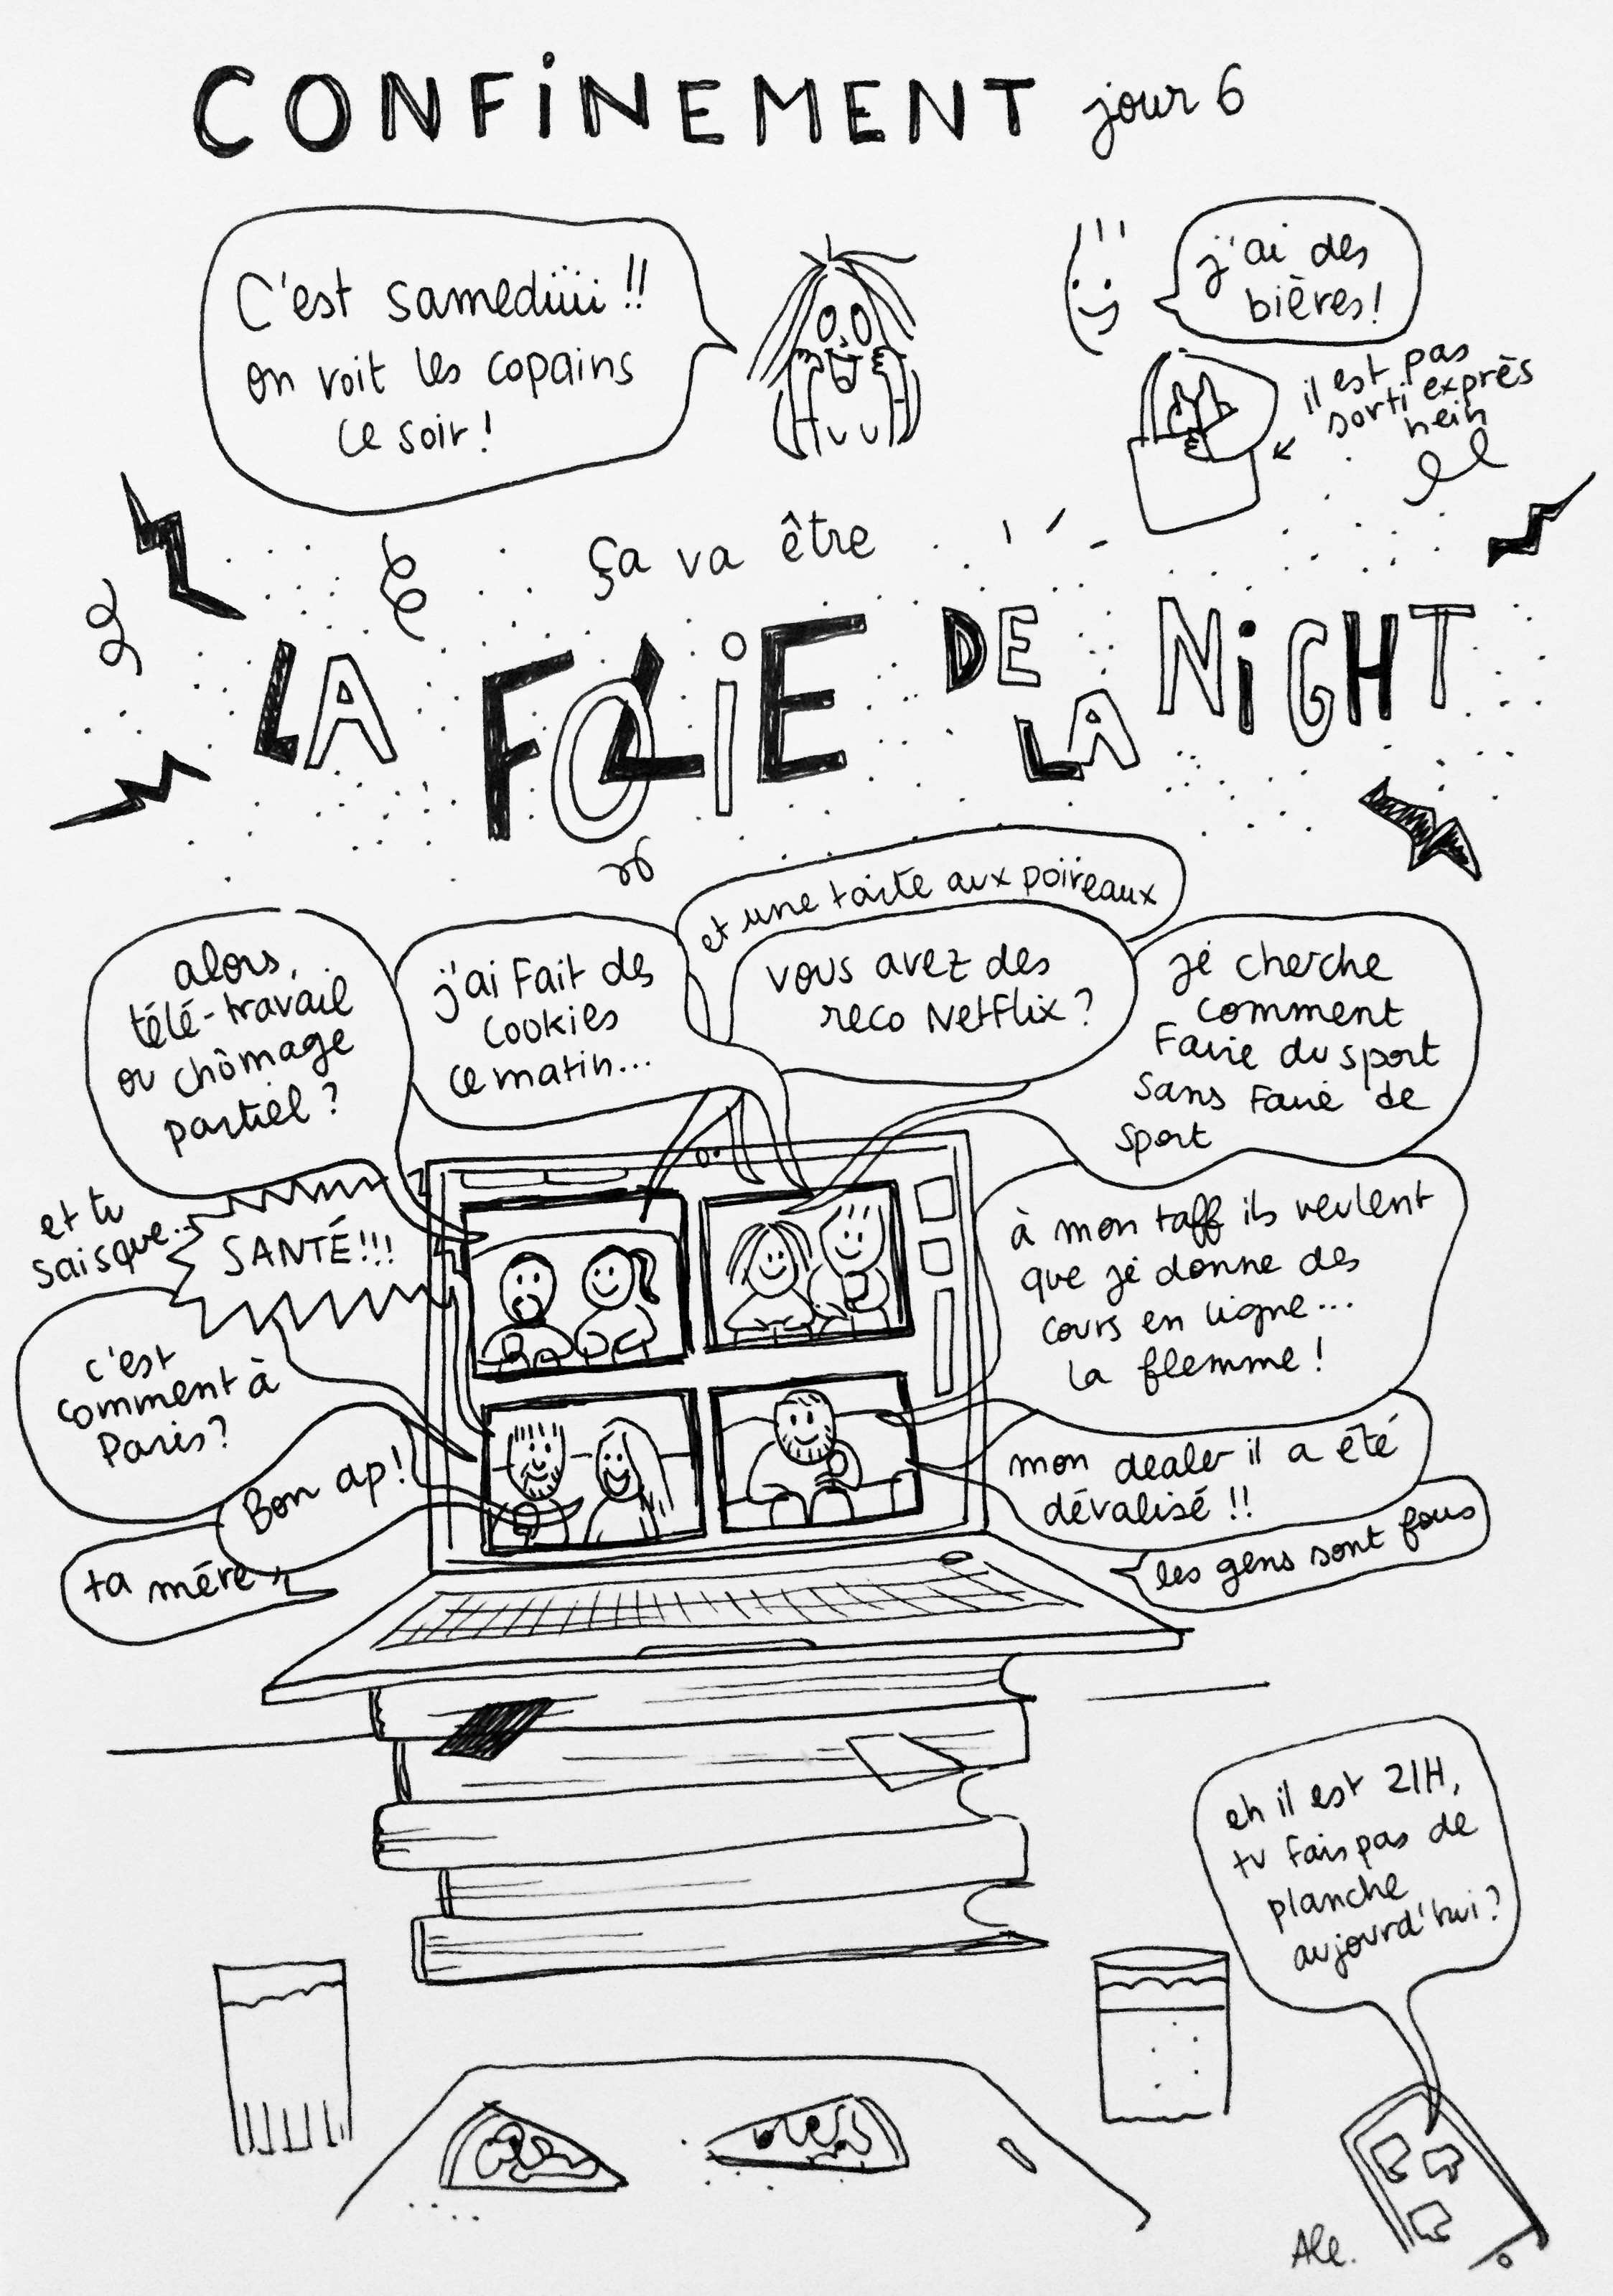 CONFINEMENT jour 6
C'est samediiii !!
on voit les copains
ce soir !
j'ai des
bières !
il est pas
sorti exprès
hein
ça va être
LA FOLIE DE LA NIGHT
et une tarte aux poireaux
alors,
télé-travail
ou chômage
partiel ?
j'ai fait des
cookies
ce matin...
vous avez des
reco Netflix ?
je cherche
comment
faire du sport
sans faire de
sport
et tu
sais que...
SANTÉ !!!
à mon taff ils veulent
que je donne des
cours en ligne...
la flemme !
c'est
comment à
Paris ?
Bon ap !
ta mère
mon dealer il a été
dévalisé !!
les gens sont fous
eh il est 21H,
tu fais pas de
planche
aujourd'hui ?
Ale.